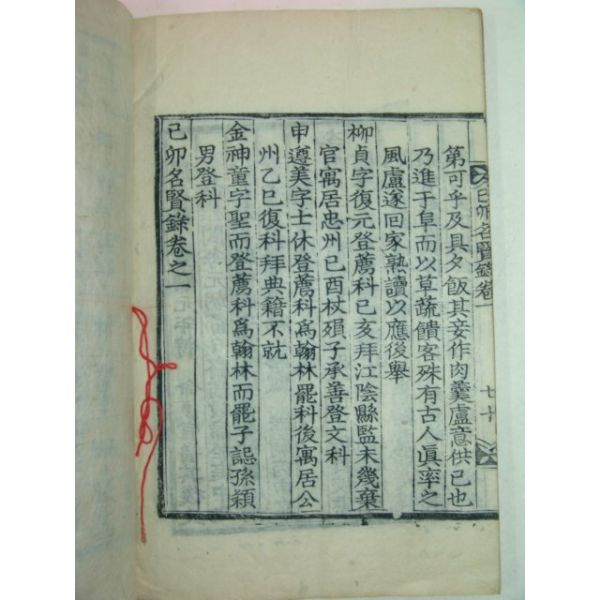 己卯名賢錄卷一
七十
第可乎及具夕飯其妾作肉羹盧意供己也
乃進于阜而以草蔬饋客殊有古人眞率之
風盧遂回家熟讀以應後舉
柳貞字復元登薦科己亥拜江陰縣監未幾棄
官寓居忠州己酉杖殞子承善登文科
申遵美字士休登薦科為翰林罷科後寓居公
州乙巳復科拜典籍不就
金神童字聖而登薦科為翰林而罷子諰孫穎
男登科
己卯名賢錄卷之一